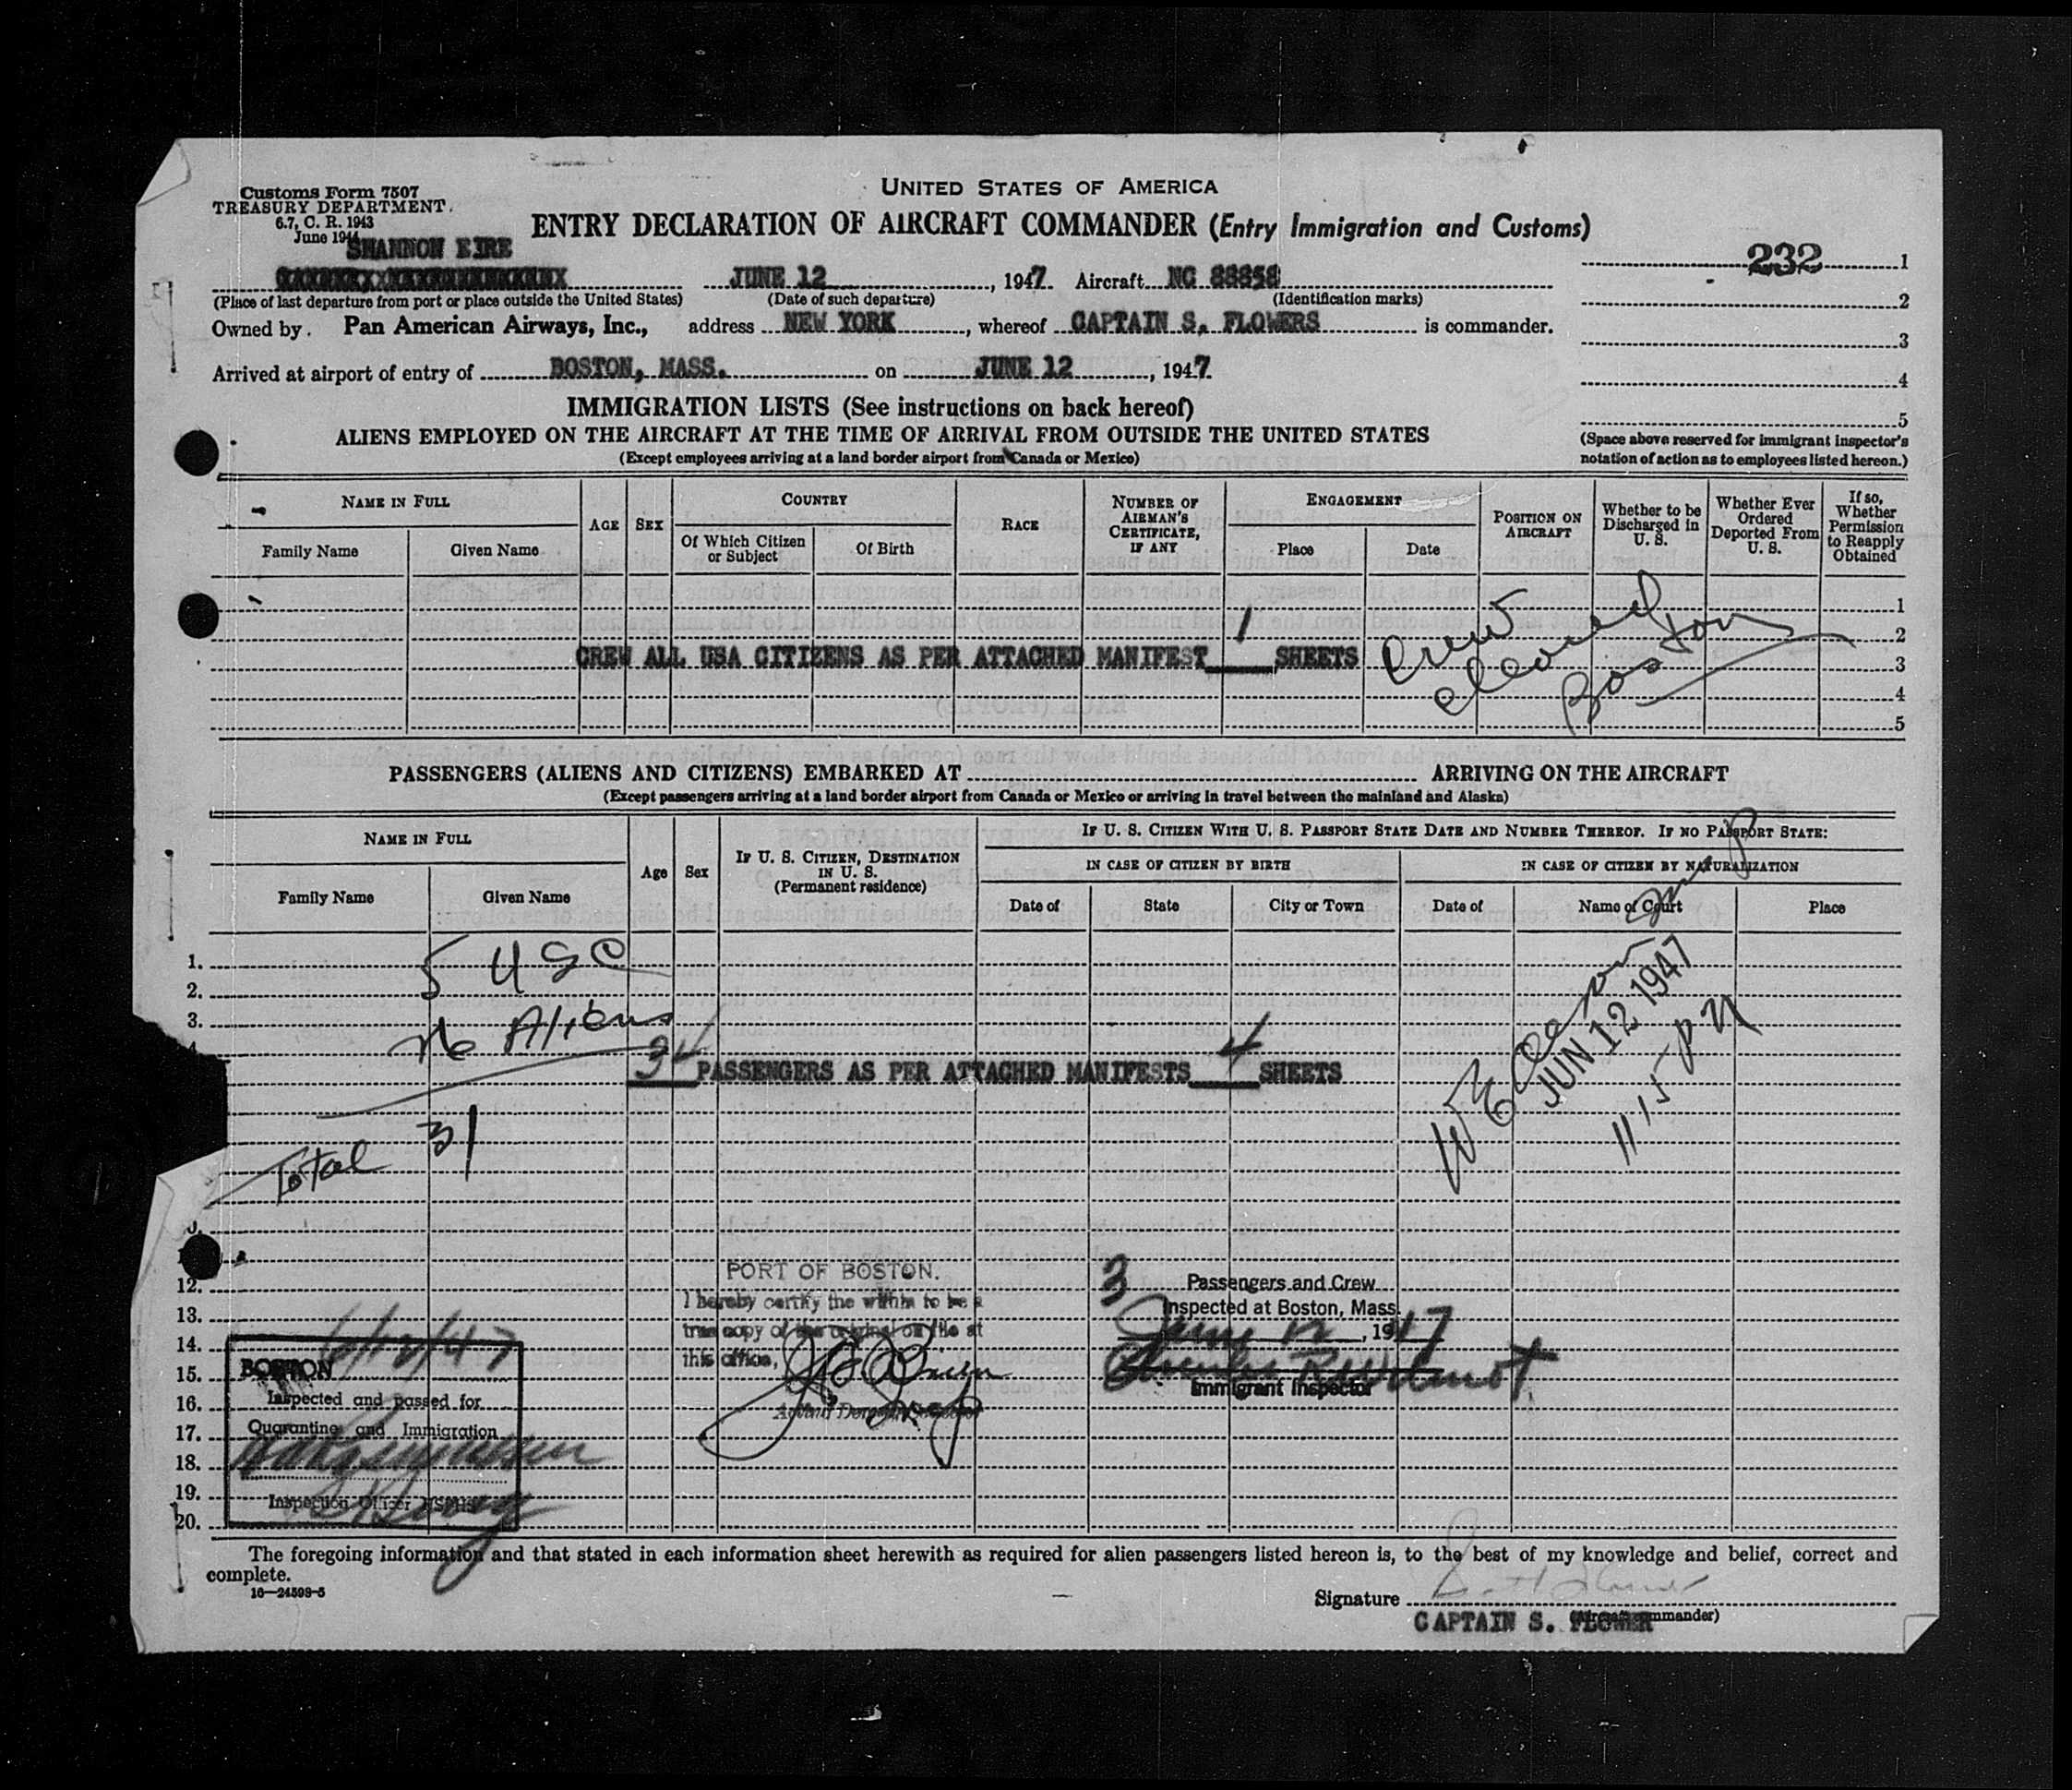 Customs Form 7507
TREASURY DEPARTMENT.
6.7, C. R. 1943
June 1944
UNITED STATES OF AMERICA
ENTRY DECLARATION OF AIRCRAFT COMMANDER (Entry Immigration and Customs)
SHANNON EIRE
JUNE 12, 1947 Aircraft NC 88858
232 1
(Place of last departure from port or place outside the United States) (Date of such departure) (Identification marks)
2
Owned by. Pan American Airways, Inc., address NEW YORK, whereof CAPTAIN S. FLOWERS is commander.
3
Arrived at airport of entry of BOSTON, MASS. on JUNE 12, 1947
4
IMMIGRATION LISTS (See instructions on back hereof)
5
ALIENS EMPLOYED ON THE AIRCRAFT AT THE TIME OF ARRIVAL FROM OUTSIDE THE UNITED STATES
(Except employees arriving at a land border airport from Canada or Mexico)
(Space above reserved for immigrant inspector's
notation of action as to employees listed hereon.)
NAME IN FULL
Family Name
Given Name
AGE
SEX
COUNTRY
Of Which Citizen
or Subject
Of Birth
RACE
NUMBER OF
AIRMAN'S
CERTIFICATE,
IF ANY
ENGAGEMENT
Place
Date
POSITION ON
AIRCRAFT
Whether to be
Discharged in
U. S.
Whether Ever
Ordered
Deported From
U. S.
If so,
Whether
Permission
to Reapply
Obtained
1
2
CREW ALL USA CITIZENS AS PER ATTACHED MANIFEST 1 SHEETS
3
4
5
Crew
cleared
Boston
PASSENGERS (ALIENS AND CITIZENS) EMBARKED AT ARRIVING ON THE AIRCRAFT
(Except passengers arriving at a land border airport from Canada or Mexico or arriving in travel between the mainland and Alaska)
NAME IN FULL
Family Name
Given Name
Age
Sex
IF U. S. CITIZEN, DESTINATION
IN U. S.
(Permanent residence)
IF U. S. CITIZEN WITH U. S. PASSPORT STATE DATE AND NUMBER THEREOF. IF NO PASSPORT STATE:
IN CASE OF CITIZEN BY BIRTH
IN CASE OF CITIZEN BY NATURALIZATION
Date of
State
City or Town
Date of
Name of Court
Place
1.
5 USC
2.
3.
no Aliens
34 PASSENGERS AS PER ATTACHED MANIFESTS 4 SHEETS
Total 31
JUN 12 1947
11 15 PM
12.
13.
14.
15.
16.
17.
18.
19.
20.
6/12/47
BOSTON
Inspected and passed for
Quarantine and Immigration
Inspection Officer USPHS
PORT OF BOSTON.
I hereby certify the within to be a
true copy of the original on file at
this office,
3
Passengers and Crew
Inspected at Boston, Mass.
June 12, 1947
Immigrant Inspector
The foregoing information and that stated in each information sheet herewith as required for alien passengers listed hereon is, to the best of my knowledge and belief, correct and
complete.
16—24598-5
Signature
CAPTAIN S. FLOWER
(Aircraft commander)